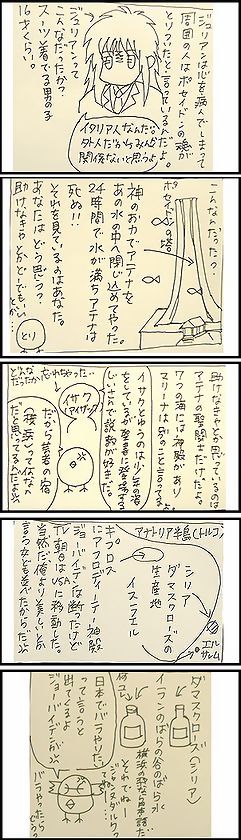 ジュリアンは心を病んでしまって
周囲の人はポセイドンの魂が
とりついたと言っているんだ。
ジュリアンって
こんなだったか?
スーツ着てる男の子
16才くらい。
イタリア人なんだな。
外人だからみんな
関係ないと思うよ。
こんなんだったっけ?
ポセイドンの塔
神のお力でアテナを
あの水の中へ閉じ込めてやった。
24時間で水が満ちアテナは
死ぬ!!
それを見ているのはあなた。
あなたはどう思う?
助けなきゃとかどーでもいい
とか…
とり
助けなきゃと思っているのは
アテナの聖闘士だけだよ。
7つの海には神殿があり
マリーナは
イサクとゆうのは少年の姿
をしているが
説教が好きだ。
どんな
だったか忘れちゃった…
イサク
(アイザック)
だから若者の宿
アナトリア半島(トルコ)
シリア
ダマスクローズの
生産地
イスラエル
エル
サレム
キプロス
にアフロディーテー神殿
ジョーバイデンは断ったけど
TV朝日はUSAに移動した。
当然だ俺より美しいとか
言う女ども並べたからだ
ダマスクローズ(シリア)
イランのばらの谷のばら水
日本でバラやりた
いって言うと
出てくるよ
ジョーバイデンが